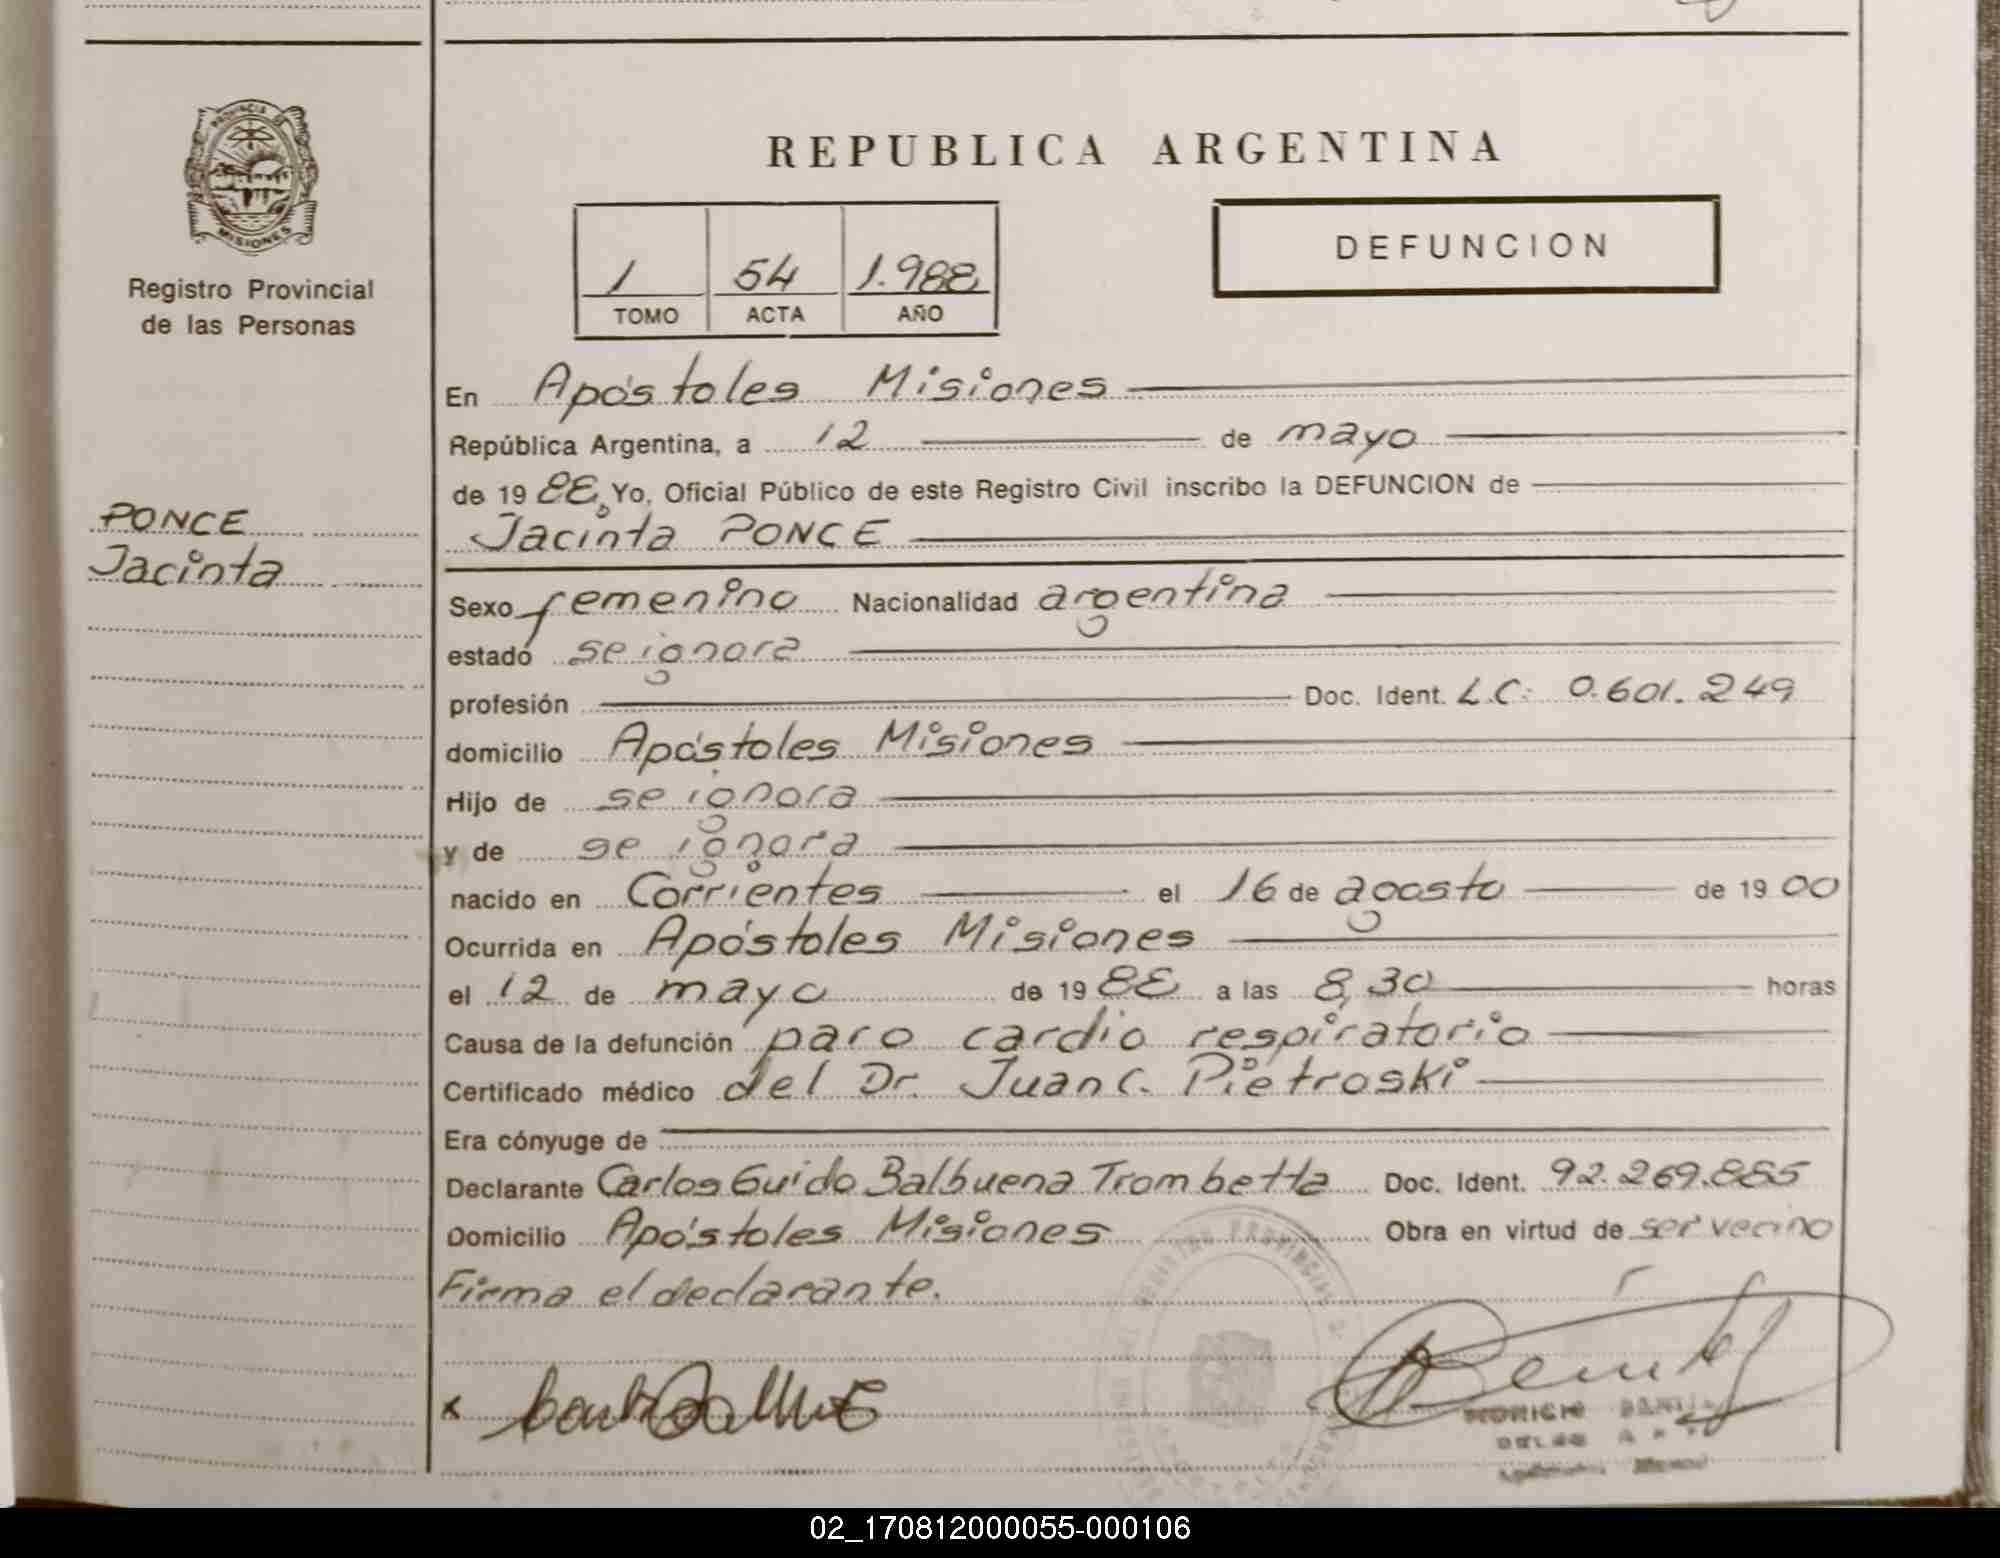 PROVINCIA D
MISIONES
Registro Provincial
de las Personas
REPUBLICA ARGENTINA
1 54 1.988
TOMO ACTA AÑO
DEFUNCION
En Apóstoles Misiones
República Argentina, a 12 de mayo
de 19 88, Yo, Oficial Público de este Registro Civil inscribo la DEFUNCION de
PONCE
Jacinta
Jacinta PONCE
Sexo femenino Nacionalidad argentina
estado se ignora
profesión Doc. Ident. L.C: 0.601.249
domicilio Apóstoles Misiones
Hijo de se ignora
y de se ignora
nacido en Corrientes el 16 de agosto de 19 00
Ocurrida en Apóstoles Misiones
el 12 de mayo de 19 88 a las 8,30 horas
Causa de la defunción paro cardio respiratorio
Certificado médico del Dr. Juan C. Pietroski
Era cónyuge de
Declarante Carlos Guido Balbuena Trombetta Doc. Ident. 92.269.885
Domicilio Apóstoles Misiones Obra en virtud de ser vecino
Firma el declarante.
x
02_170812000055-000106